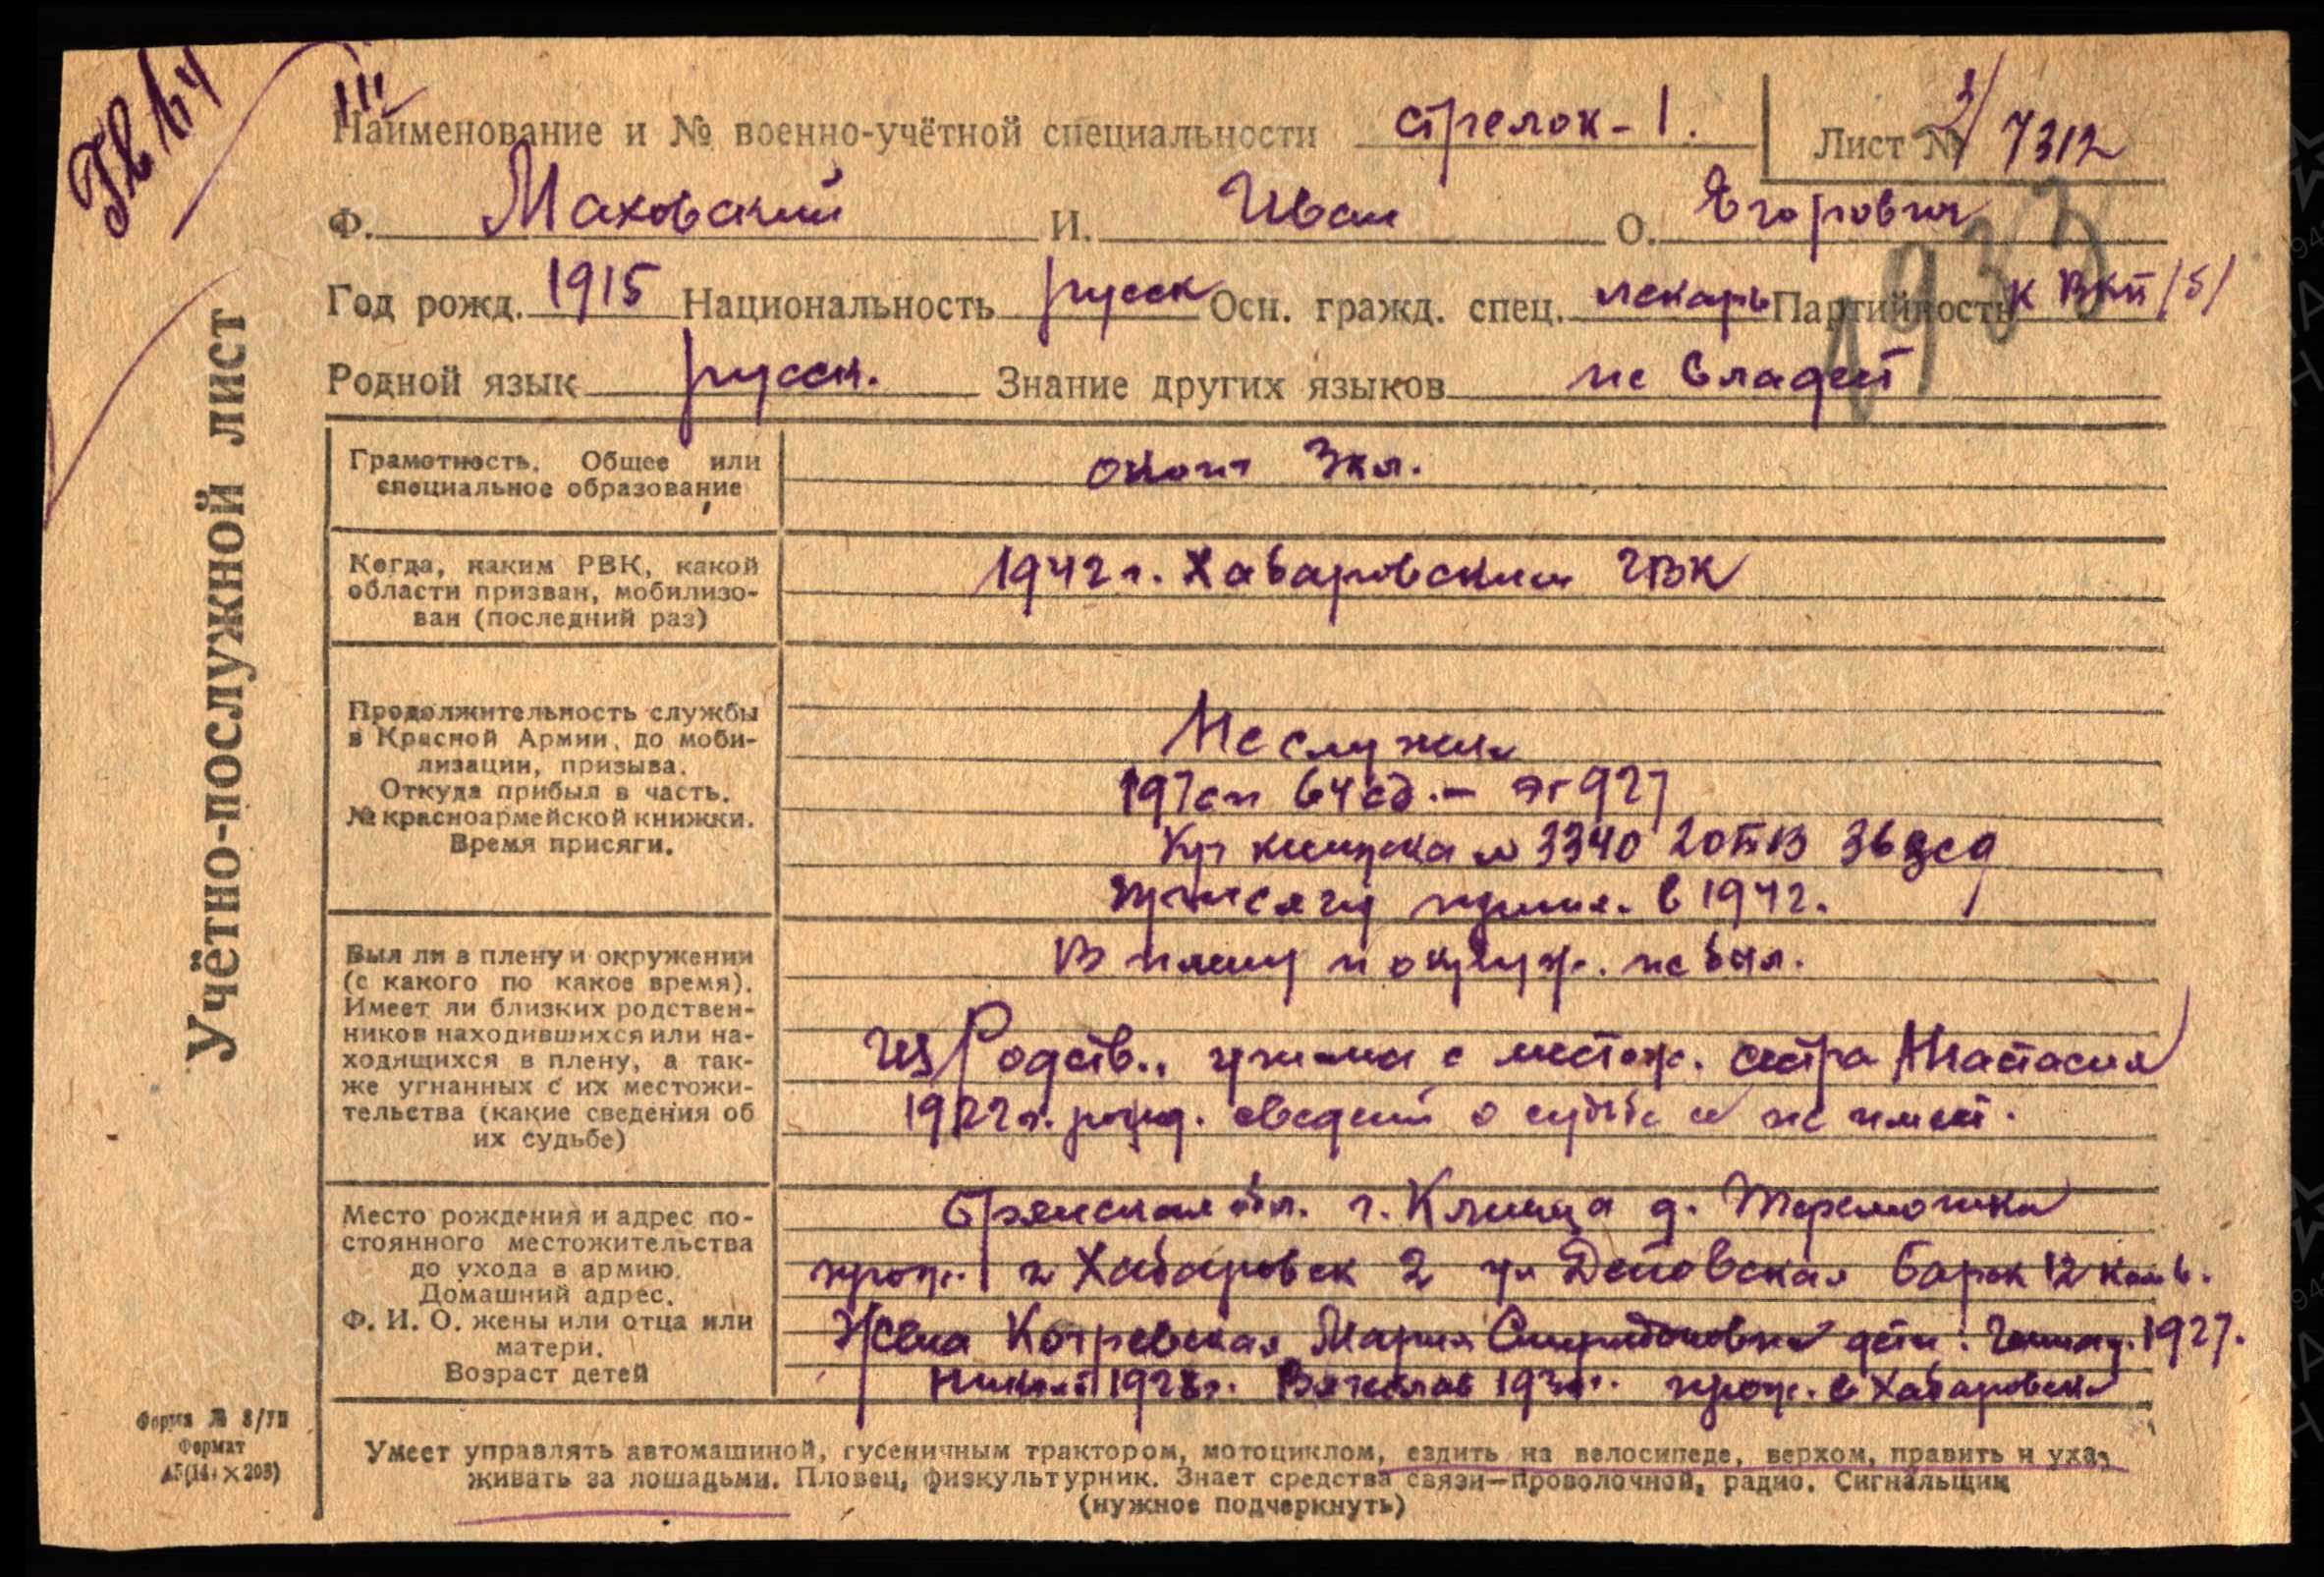 Учётно-послужной лист
III
Наименование и № военно-учётной специальности стрелок - 1. Лист № 3/7312
Ф. Маховский И. Иван О. Егорович
Год рожд. 1915 Национальность русск Осн. гражд. спец. пекарь Партийность К ВКП/б/
Родной язык русск. Знание других языков не владеет
Грамотность. Общее или
специальное образование
оконч 3 кл.
Когда, каким РВК, какой
области призван, мобилизо-
ван (последний раз)
1942 г. Хабаровским ГВК
Продолжительность службы
в Красной Армии, до моби-
лизации, призыва.
Откуда прибыл в часть.
№ красноармейской книжки.
Время присяги.
Не служил
197 сп 64 сд. - эг 927
Кр книжка № 3340 36 зсд
присягу принял. в 1942.
Был ли в плену и окружении
(с какого по какое время).
Имеет ли близких родствен-
ников находившихся или на-
ходящихся в плену, а так-
же угнанных с их местожи-
тельства (какие сведения об
их судьбе)
В плену и окруж. не был.
Из Родств., с местож. сестра Анастасия
1922 г. рожд. сведений о судьбе её не имеет.
Место рождения и адрес по-
стоянного местожительства
до ухода в армию.
Домашний адрес.
Ф. И. О. жены или отца или
матери.
Возраст детей
Брянская обл. г. Клинца д.
прож. г Хабаровск 2 ул Деповская барак 12 комв.
Жена Мария Спиридоновна дети: 1927.
Николай 1928 г. Вячеслав прож. в Хабаровске
Умеет управлять автомашиной, гусеничным трактором, мотоциклом, ездить на велосипеде, верхом, править и уха-
живать за лошадьми. Пловец, физкультурник. Знает средства связи—проволочной, радио. Сигнальщик
(нужное подчеркнуть)
Форма № 8/УП
Формат